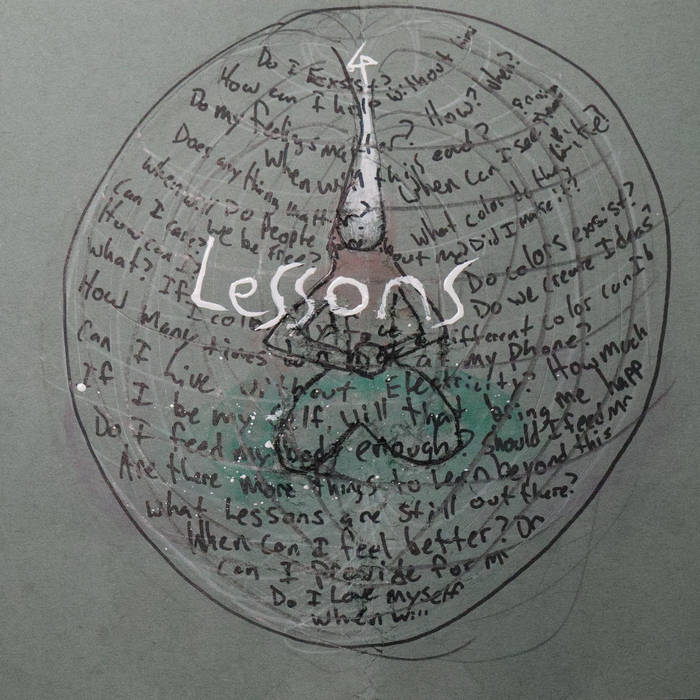 Do I Exsist?
How can I help without him
Do my feelings matter? How? When?
When will this end?
Does anything matter? When can I see them
When will we be free? Do People
What color do they
Can I care? out me? Did I make it?
How can I? Do colors exsist?
What? If Do we create Ideas
Lessons
I different color can I b
How many times my phone?
Can I live without Electricity? How much
If I be my self, will that bring me happ
Do I feed my body enough? Should I feed mr
Are there more things to learn beyond this
What Lessons are still out there?
When can I feel better? Or
can I provide for m
Do I Love myself
when will